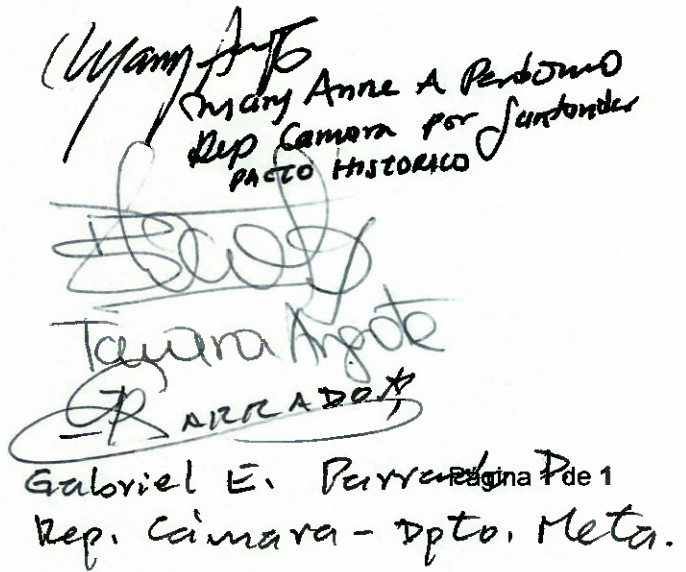 Mary Anne A Perdomo
Rep Camara por Santander
PACTO HISTORICO
Tamara Argote
PARRADO
Gabriel E. Parrado D.
Página 1 de 1
Rep. Cámara - Dpto. Meta.